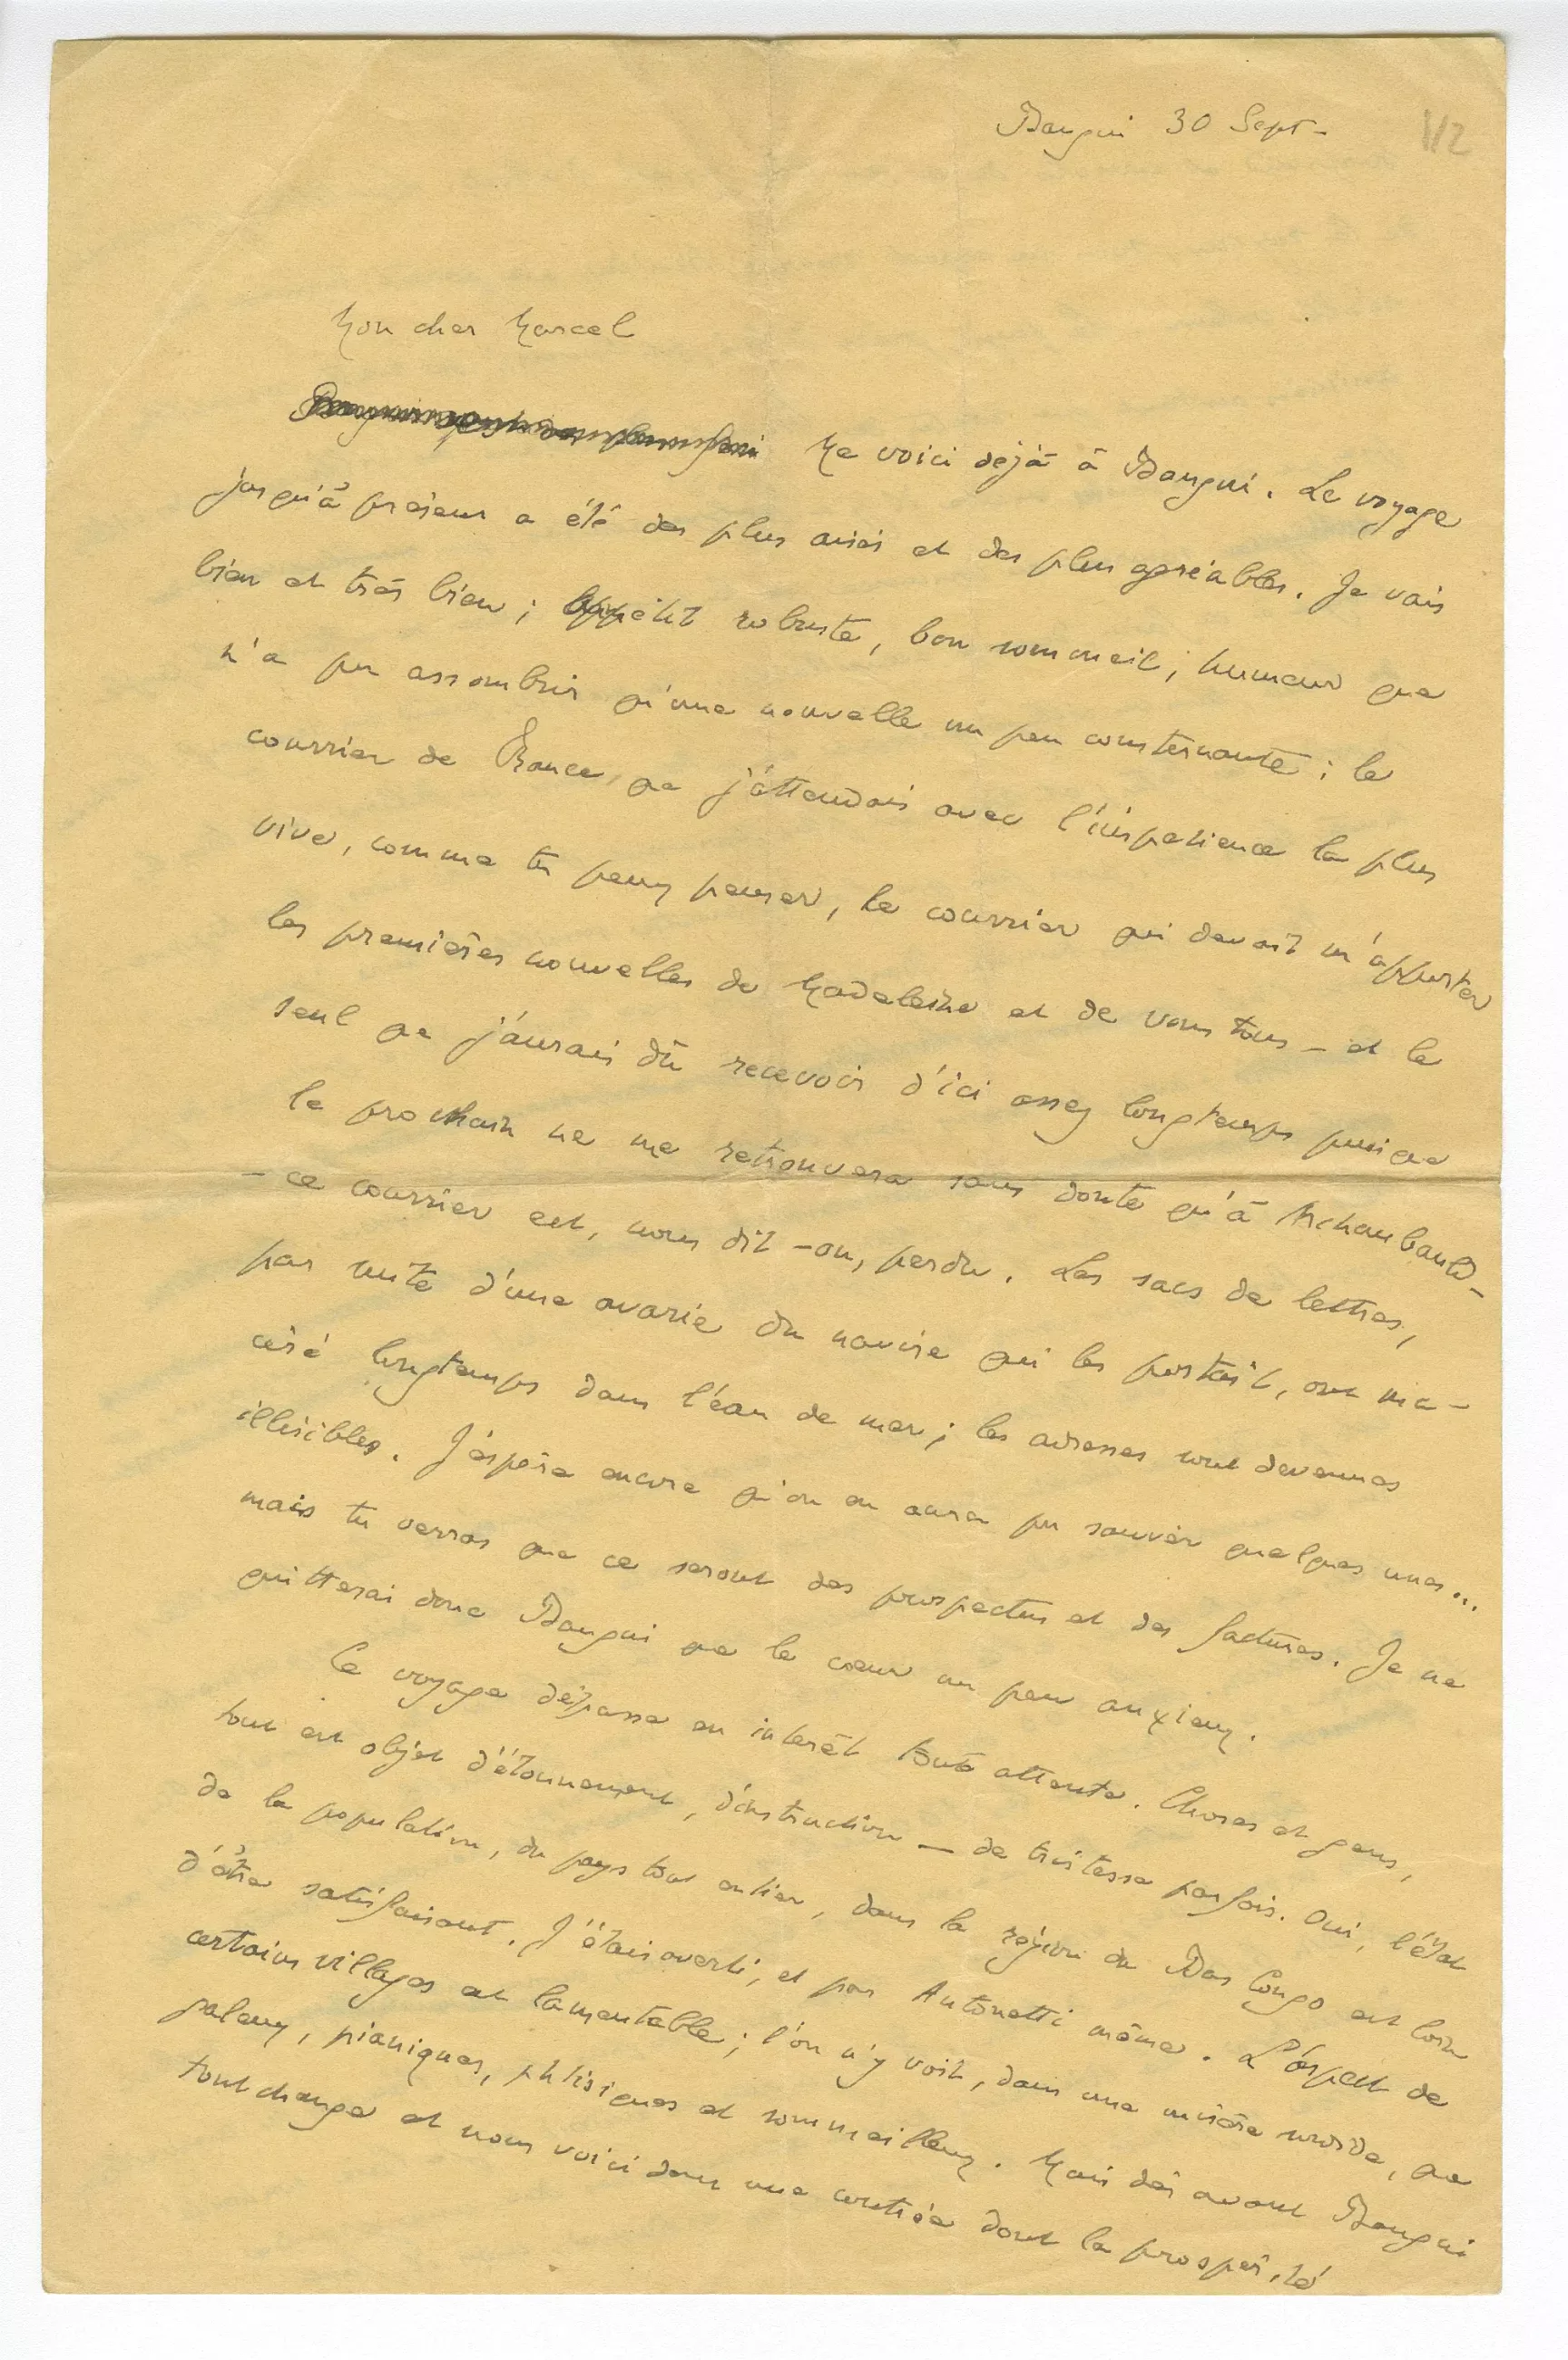 Bangui 30 Sept-
112
Mon cher Marcel
Me voici déjà à Bangui. Le voyage
jusqu'à présent a été des plus aisés et des plus agréables. Je vais
bien et très bien ; appétit robuste, bon sommeil ; humeur que
n'a pu assombrir qu'une nouvelle un peu consternante : le
courrier de France, que j'attendais avec l'impatience la plus
vive, comme tu peux penser, le courrier qui devait m'apporter
les premières nouvelles de Madeleine et de vous tous – et le
seul que j'aurais dû recevoir d'ici assez longtemps puisque
le prochain ne me retrouvera sans doute qu'à Archambault –
– ce courrier est, nous dit-on, perdu. Les sacs de lettres,
par suite d'une avarie du navire qui les portait, ont ma-
céré longtemps dans l'eau de mer ; les adresses sont devenues
illisibles. J'espère encore qu'on en aura pu sauver quelques unes...
mais tu verras que ce seront des prospectus et des factures. Je ne
quitterai donc Bangui que le cœur un peu anxieux.
Ce voyage dépasse en intérêt toute attente. Choses et gens,
tout est objet d'étonnement, d'instruction — de tristesse parfois. Oui, l'état
de la population, du pays tout entier, dans la région du Bas Congo est loin
d'être satisfaisant. J'étais averti, et par Antonetti même. L'aspect de
certains villages est lamentable ; l'on n'y voit, dans une misère sordide, que
galeux, pianiques, phtisiques et sommeilleux. Mais dès avant Bangui
tout change et nous voici dans une contrée dont la prospérité